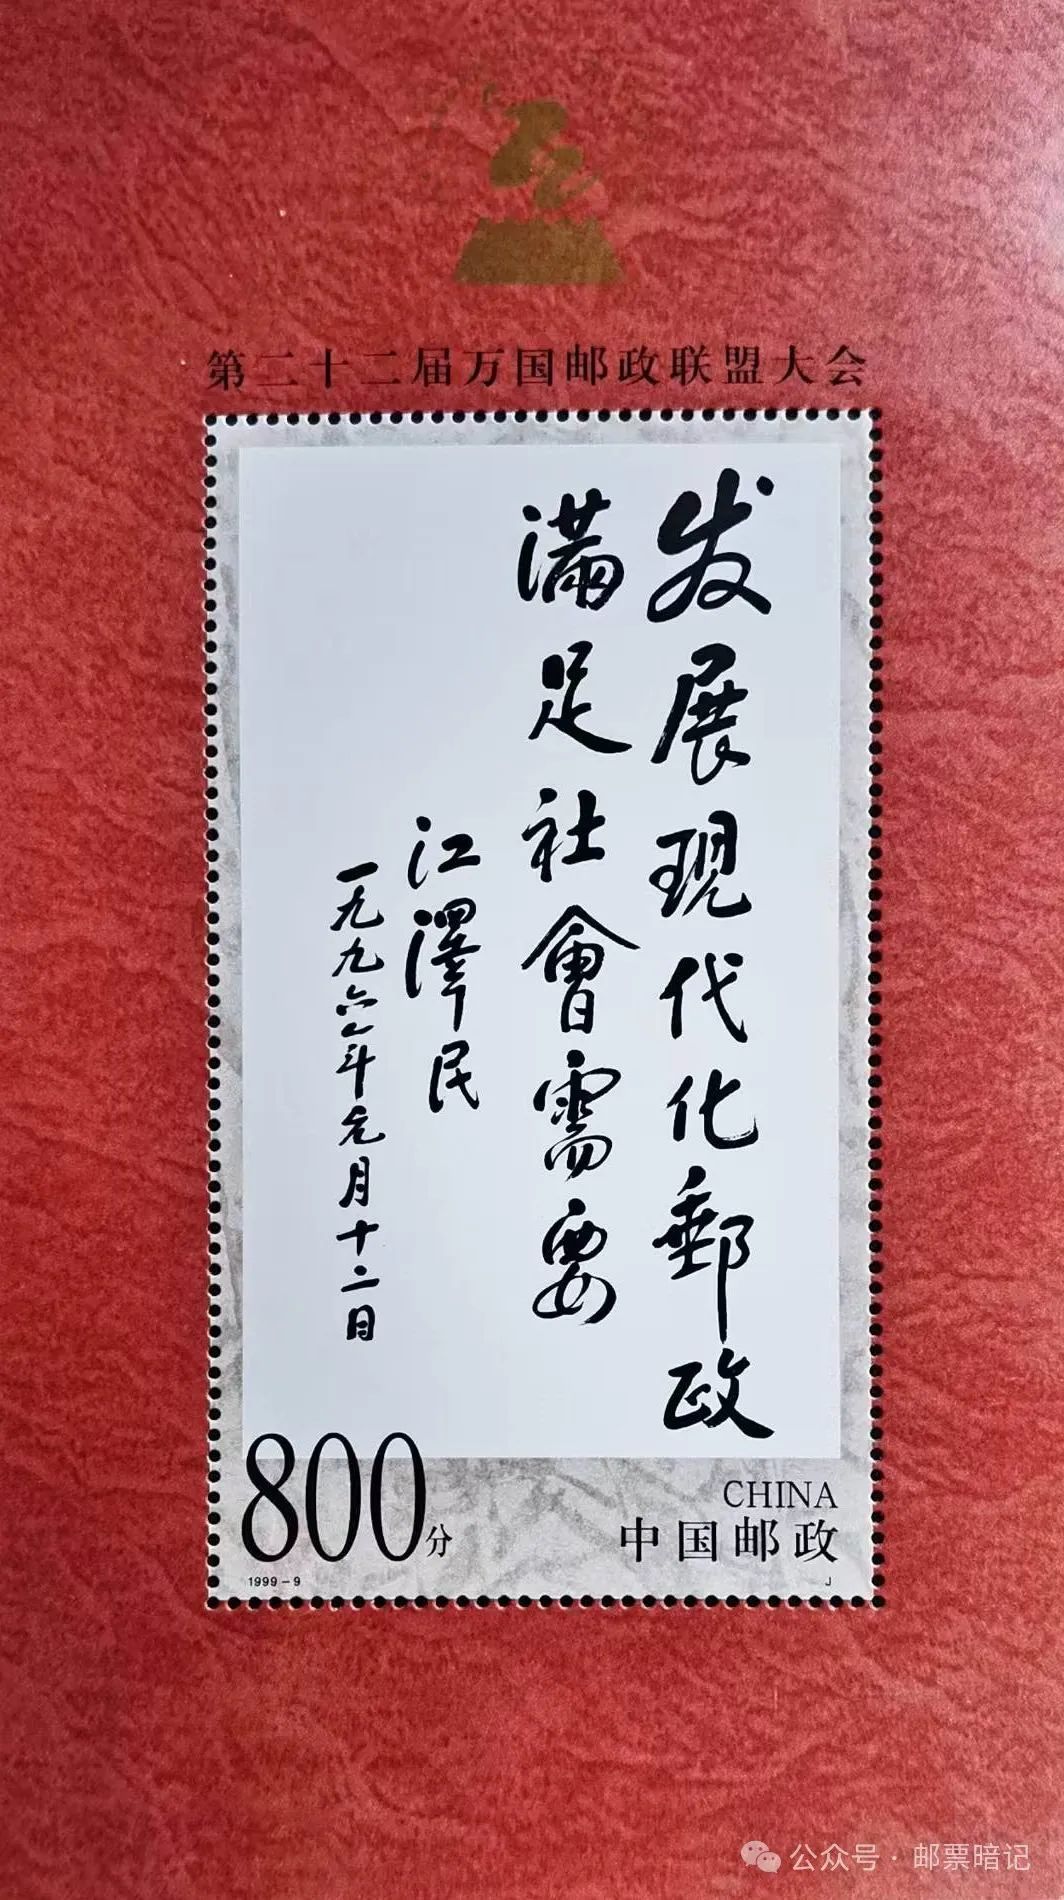 第二十二届万国邮政联盟大会
发展现代化郵政
满足社會需要
江澤民
一九九六年元月十二日
800分
CHINA
中国邮政
1999-9
J
公众号·邮票暗记